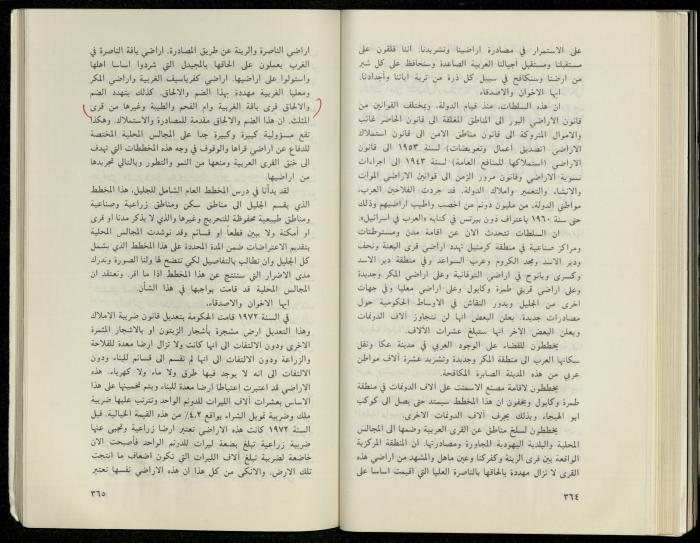 على الاستمرار في مصادرة اراضينا وتشريدنا. اننا قلقون على
مستقبلنا ومستقبل أجيالنا العربية الصاعدة وسنحافظ على كل شبر
من ارضنا وسنكافح في سبيل كل ذرة من تربة آبائنا وأجدادنا.
ايها الاخوان والاصدقاء
ان هذه السلطات، منذ قيام الدولة، وبمختلف القوانين من
قانون الاراضي البور الى المناطق المغلقة الى قانون الحاضر غائب
والاموال المتروكة الى قانون مناطق الامن الى قانون استملاك
الاراضي (تصديق أعمال وتعويضات) لسنة ١٩٥٣ الى قانون
الاراضي (استملاكها للمنافع العامة) لسنة ١٩٤٣ الى اجراءات
تسوية الاراضي وقانون مرور الزمن الى قوانين الاراضي الموات
والانشاء والتعمير واملاك الدولة، قد جردت الفلاحين العرب،
مواطني الدولة، من مليون دونم من اخصب واطيب اراضيهم وذلك
حتى سنة ١٩٦٠ باعتراف دون بيرتس في كتابه «العرب في اسرائيل».
ان السلطات تتحدث الان عن اقامة مدن ومستوطنات
ومراكز صناعية في منطقة كرمئيل تهدد اراضي قرى البعنة ونحف
ودير الاسد ومجد الكروم وعرب السواعد وفي منطقة دير الاسد
وكسرى ويانوح في اراضي التوفانية وعلى اراضي المكر وجديدة
وعلى اراضي قريتي طمرة وكابول وعلى اراضي معليا وفي جهات
اخرى من الجليل ويدور النقاش في الاوساط الحكومية حول
مصادرات جديدة. يعلن البعض أنها لن تتجاوز آلاف الدونمات
ويعلن البعض الآخر انها ستبلغ عشرات الآلاف.
يخططون للقضاء على الوجود العربي في مدينة عكا ونقل
سكانها العرب الى منطقة المكر وجديدة وتشريد عشرة آلاف مواطن
عربي من هذه المدينة الصابرة المكافحة.
يخططون لاقامة مصنع الاسمنت على آلاف الدونمات في منطقة
طمرة وكابول ويخفون ان هذا المخطط سيمتد حتى يصل الى كوكب
ابو الهيجاء وبذلك يجرف آلاف الدونمات الاخرى.
يخططون لسلخ مناطق عن القرى العربية وضمها الى المجالس
المحلية والبلدية اليهودية المجاورة ومصادرتها. ان المنطقة المركزية
الواقعة بين قرى الرينة وكفركنا وعين ماهل والمشهد من اراضي هذه
القرى لا تزال مهددة بالحاقها بالناصرة العليا التي اقيمت اساسا على
٣٦٤
اراضي الناصرة والرينة عن طريق المصادرة. اراضي يافة الناصرة في
الغرب يعملون على الحاقها بالمجيدل التي شردوا اساسا اهلها
واستولوا على اراضيها. اراضي كفرياسيف الغربية واراضي المكر
ومعليا الغربية مهددة بهذا الضم والالحاق. كذلك يتهدد الضم
والالحاق قرى باقة الغربية وام الفحم والطيبة وغيرها من قرى
المثلث. ان هذا الضم والالحاق مقدمة للمصادرة والاستملاك. وهكذا
تقع مسؤولية كبيرة وكبيرة جدا على المجالس المحلية المختصة
للدفاع عن اراضي قراها والوقوف في وجه هذه المخططات التي تهدف
الى خنق القرى العربية ومنعها من النمو والتطور وبالتالي تجريدها
من اراضيها.
لقد بدأنا في درس المخطط العام الشامل للجليل، هذا المخطط
الذي يقسم الجليل الى مناطق سكن ومناطق زراعية وصناعية
ومناطق طبيعية محفوظة للتحريج وغيرها والذي لا يذكر مدنا او قرى
او أمكنة ولا يبين قطعاً او قسائم وقد نوشدت المجالس المحلية
بتقديم الاعتراضات ضمن المدة المحددة على هذا المخطط الذي يشمل
كل الجليل وان تطالب بالتفاصيل لكي تتضح لها ولنا الصورة وندرك
مدى الاضرار التي ستنتج عن هذا المخطط اذا ما اقر. ونعتقد ان
المجالس المحلية قد قامت بواجبها في هذا الشأن.
ايها الاخوان والاصدقاء.
في السنة ١٩٧٢ قامت الحكومة بتعديل قانون ضريبة الاملاك
وهذا التعديل ارض مشجرة بأشجار الزيتون او بالاشجار المثمرة
الاخرى ودون الالتفات الى انها كانت ولا تزال ارضا معدة للفلاحة
والزراعة ودون الالتفات الى انها لم تقسم الى قسائم للبناء ودون
الالتفات الى انه لا يوجد فيها طرق ولا ماء ولا كهرباء. هذه
الاراضي قد اعتبرت اعتباطا ارضا معدة للبناء ويتم تخمينها على هذا
الاساس بعشرات آلاف الليرات للدونم الواحد وتترتب عليها ضريبة
ملك وضريبة تمويل الشراء بواقع ٤،٢٪ من هذه القيمة الخيالية. قبل
السنة ١٩٧٢ كانت هذه الاراضي تعتبر ارضا زراعية وتجبى عنها
ضريبة زراعية تبلغ بضعة ليرات للدونم الواحد فأصبحت الان
خاضعة لضريبة تبلغ آلاف الليرات التي تكون اضعاف ما انتجت
تلك الارض. والانكى من كل هذا ان هذه الاراضي نفسها تعتبر
٣٦٥